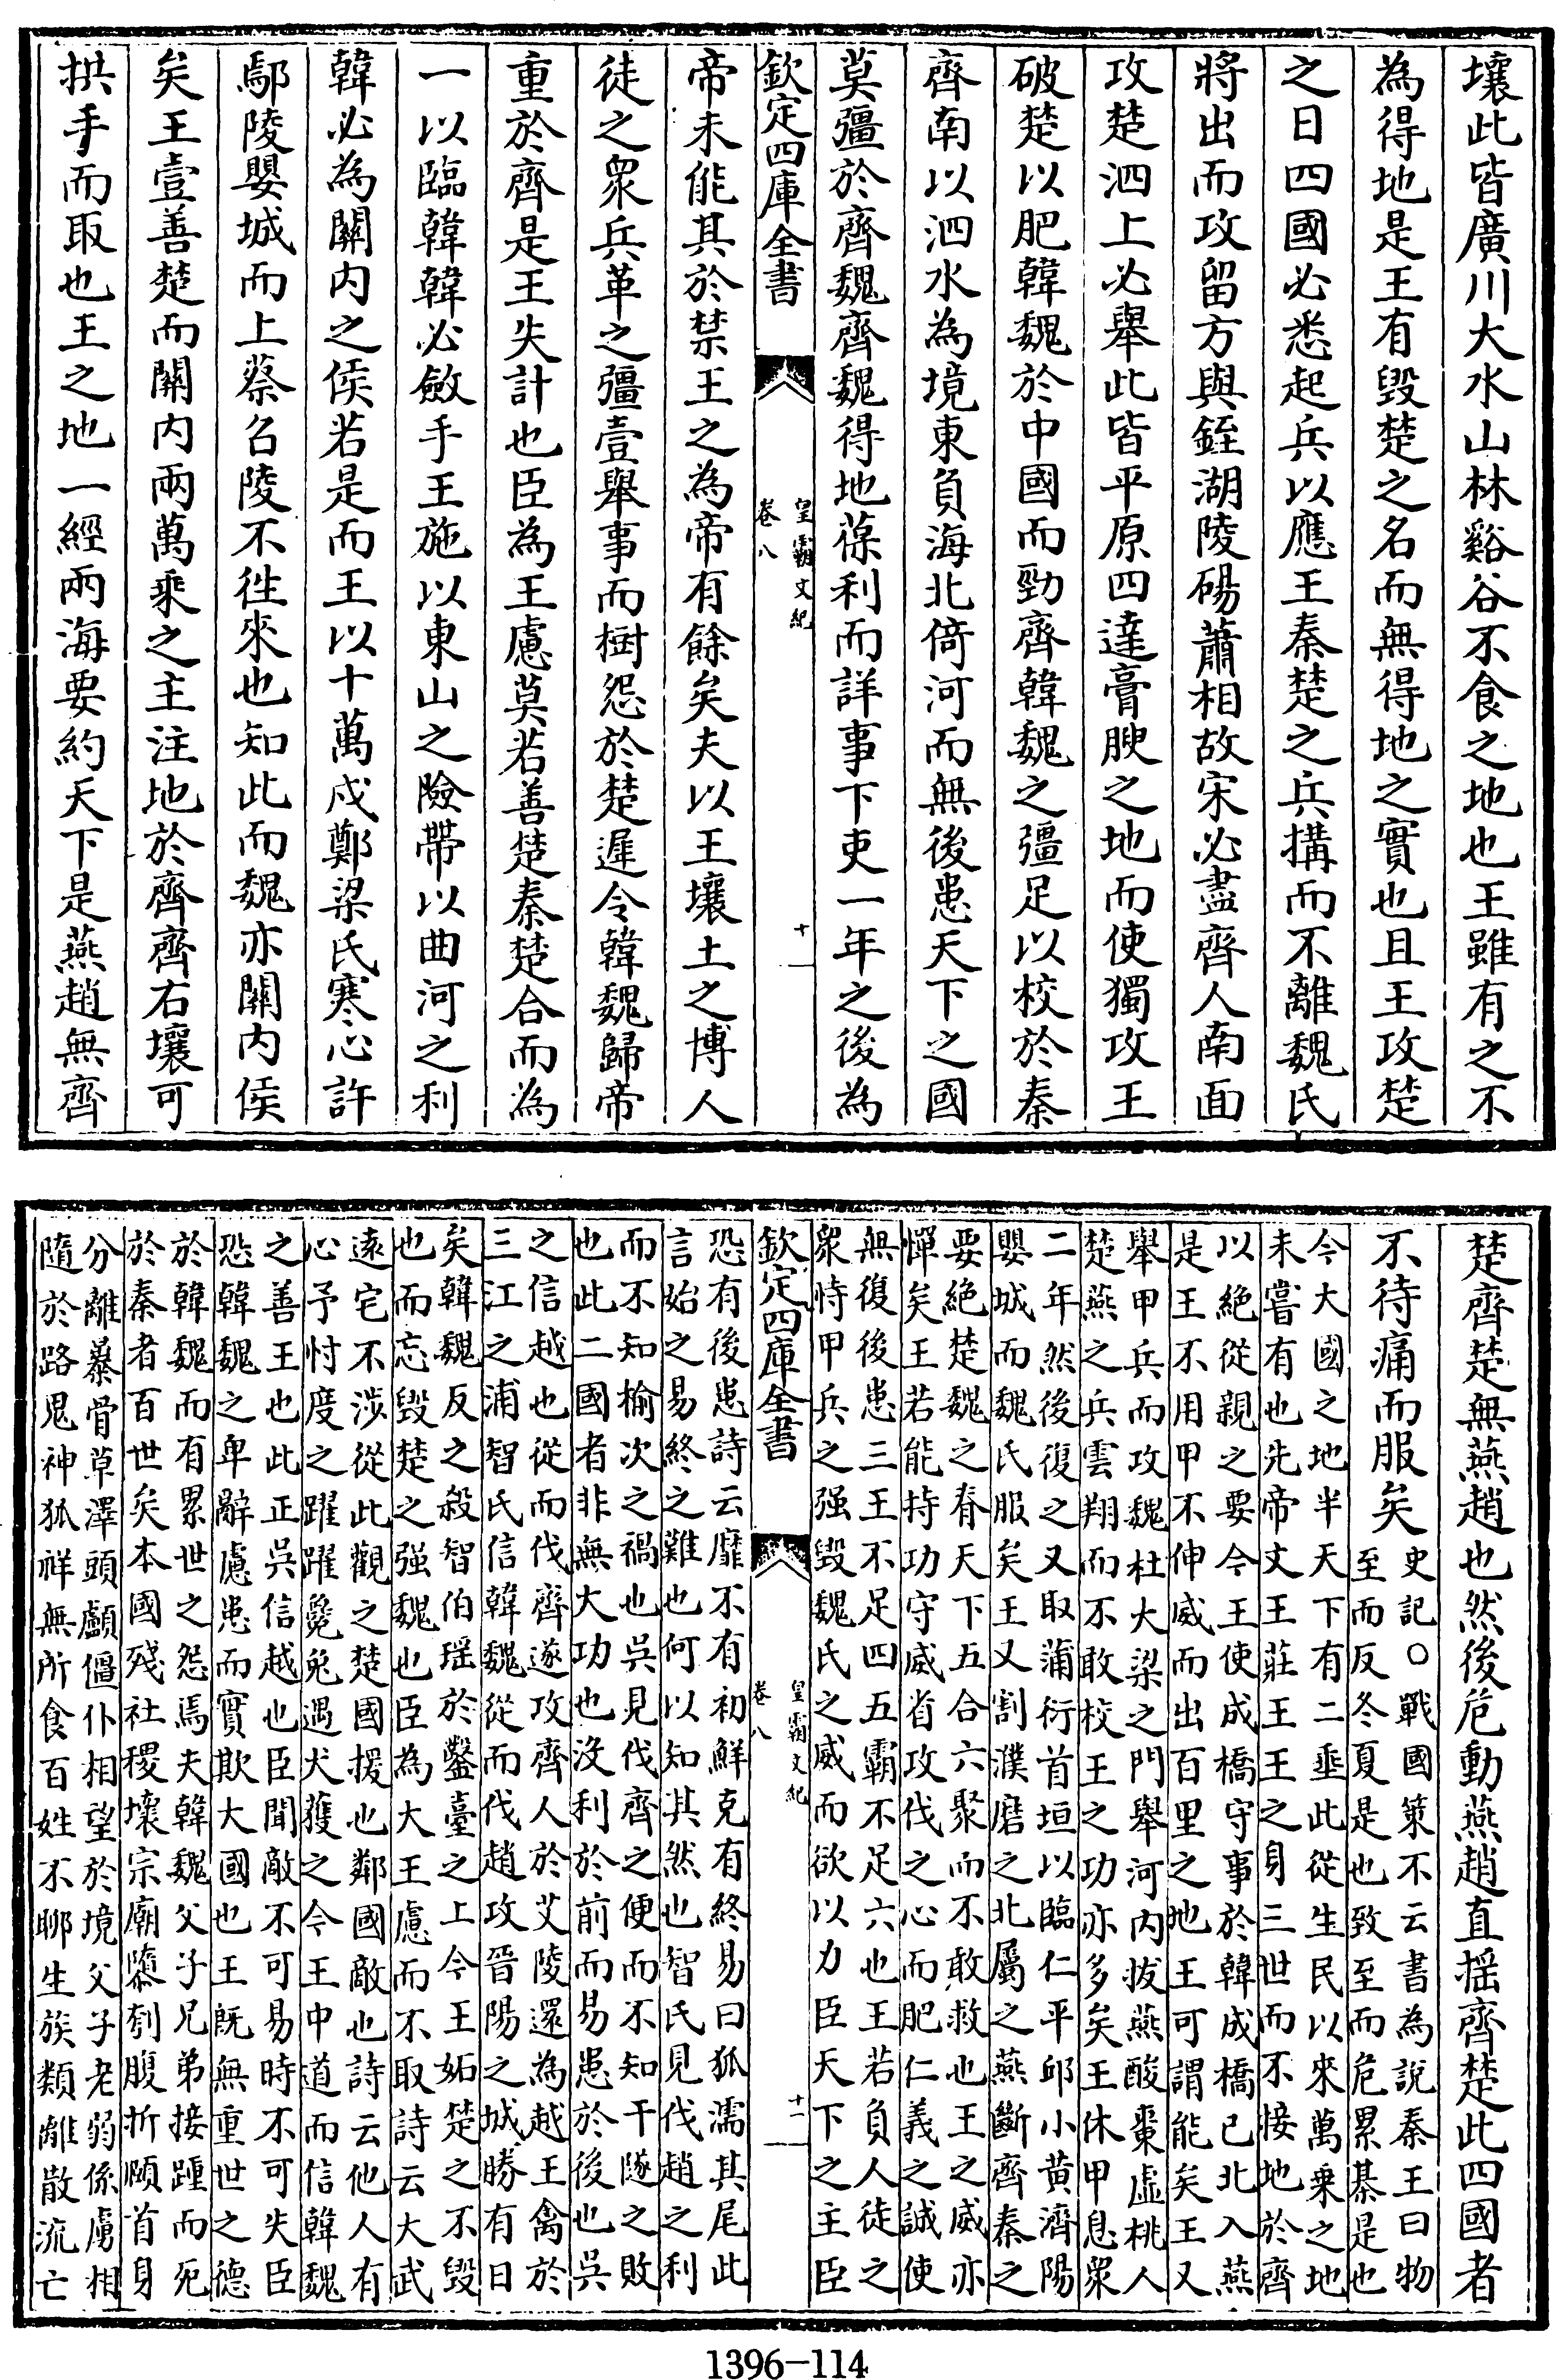 壤此皆廣川大水山林谿谷不食之地也王雖有之不
為得地是王有毀楚之名而無得地之實也且王攻楚
之日四國必悉起兵以應王秦楚之兵搆而不離魏氏
將出而攻留方與銍湖陵碭蕭相故宋必盡齊人南面
攻楚泗上必舉此皆平原四達膏腴之地而使獨攻王
破楚以肥韓魏於中國而勁齊韓魏之彊足以校於秦
齊南以泗水為境東負海北倚河而無後患天下之國
莫彊於齊魏齊魏得地葆利而詳事下吏一年之後為
欽定四庫全書
皇霸文紀
卷八
十一
帝未能其於禁王之為帝有餘矣夫以王壤土之博人
徒之眾兵革之彊壹舉事而樹怨於楚遲令韓魏歸帝
重於齊是王失計也臣為王慮莫若善楚秦楚合而為
一以臨韓韓必斂手王施以東山之險帶以曲河之利
韓必為關內之侯若是而王以十萬戍鄭梁氏寒心許
鄢陵嬰城而上蔡召陵不徃來也知此而魏亦關內侯
矣王壹善楚而關內兩萬乘之主注地於齊齊右壤可
拱手而取也王之地一經兩海要約天下是燕趙無齊
楚齊楚無燕趙也然後危動燕趙直揺齊楚此四國者
不待痛而服矣
史記○戰國策不云書為說秦王曰物
至而反冬夏是也致至而危累棊是也
今大國之地半天下有二垂此從生民以來萬乗之地
未嘗有也先帝文王莊王王之身三世而不接地於齊
以絶從親之要今王使成橋守事於韓成橋已北入燕
是王不用甲不伸威而出百里之地王可謂能矣王又
舉甲兵而攻魏杜大梁之門舉河內拔燕酸棗虛桃人
楚燕之兵雲翔而不敢校王之功亦多矣王休甲息眾
二年然後復之又取蒲衍首垣以臨仁平邱小黃濟陽
嬰城而魏氏服矣王又割濮磨之北屬之燕斷齊秦之
要絶楚魏之脊天下五合六聚而不敢救也王之威亦
憚矣王若能持功守威省攻伐之心而肥仁義之誠使
無復後患三王不足四五霸不足六也王若負人徒之
眾恃甲兵之强毀魏氏之威而欲以力臣天下之主臣
欽定四庫全書
皇霸文紀
卷八
十二
恐有後患詩云靡不有初鮮克有終易曰狐濡其尾此
言始之易終之難也何以知其然也智氏見伐趙之利
而不知榆次之禍也吳見伐齊之便而不知干隧之敗
也此二國者非無大功也没利於前而易患於後也吳
之信越也從而伐齊遂攻齊人於艾陵還為越王禽於
三江之浦智氏信韓魏從而伐趙攻晉陽之城勝有日
矣韓魏反之殺智伯瑶於鑿臺之上今王妬楚之不毀
也而忘毀楚之强魏也臣為大王慮而不取詩云大武
遠宅不涉從此觀之楚國援也鄰國敵也詩云他人有
心予忖度之躍躍毚兔遇犬獲之今王中道而信韓魏
之善王也此正吳信越也臣聞敵不可易時不可失臣
恐韓魏之卑辭慮患而實欺大國也王既無重世之德
於韓魏而有累世之怨焉夫韓魏父子兄弟接踵而死
於秦者百世矣本國殘社稷壞宗廟隳刳腹折頤首身
分離暴骨草澤頭顱僵仆相望於境父子老弱係虜相
隨於路鬼神狐祥無所食百姓不聊生族類離散流亡
1396-114